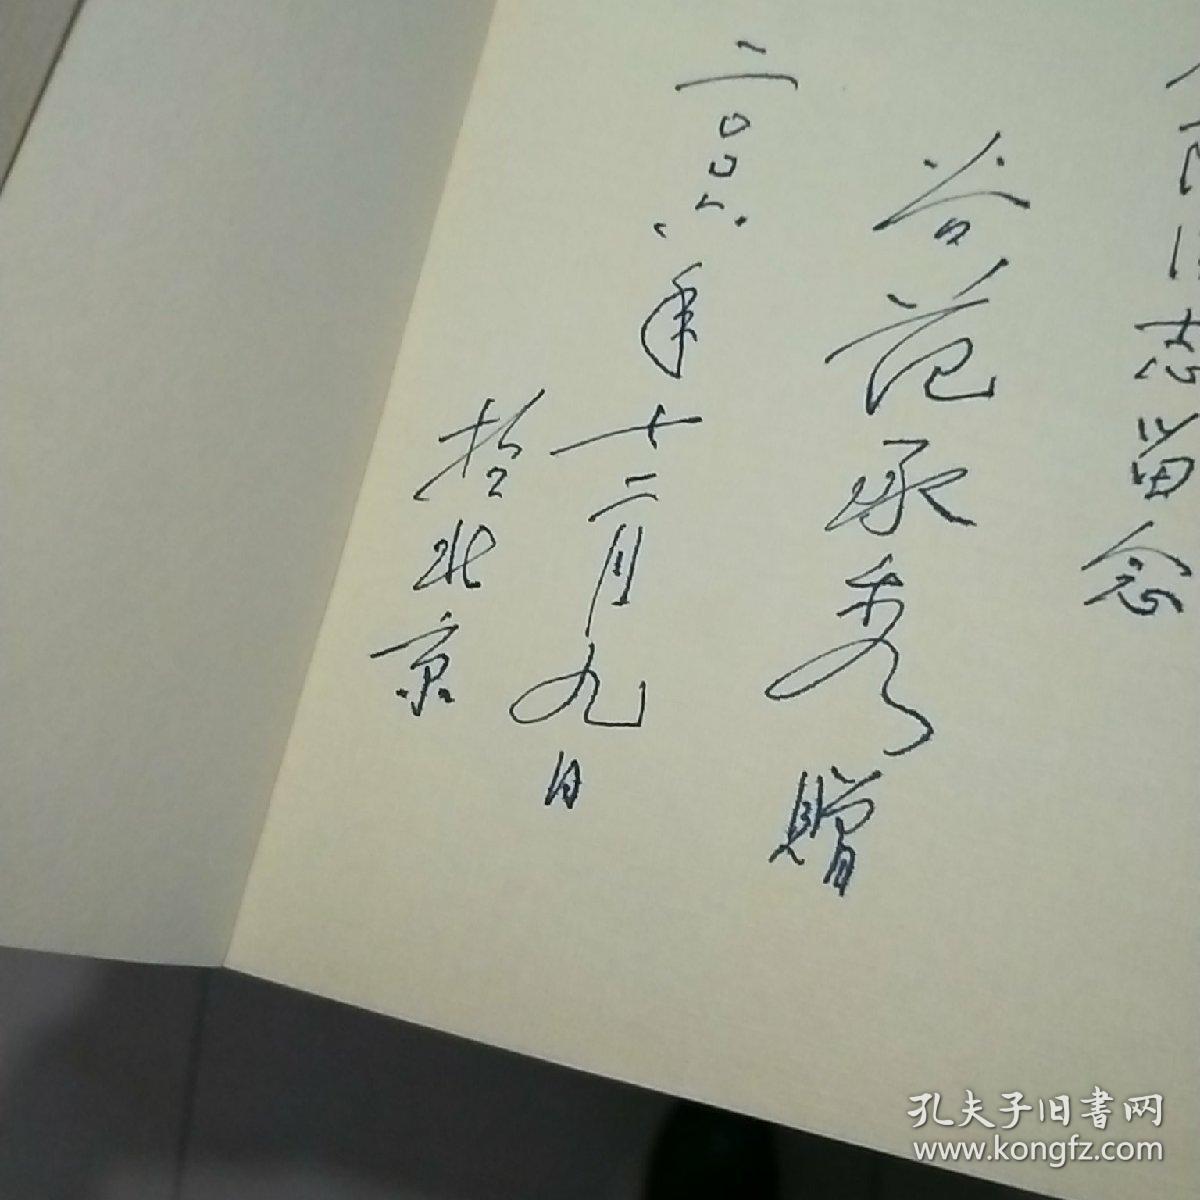 志留念
谷范承秀贈
二〇〇六年
十二月九日
於北京
孔夫子旧书网
www.kongfz.com